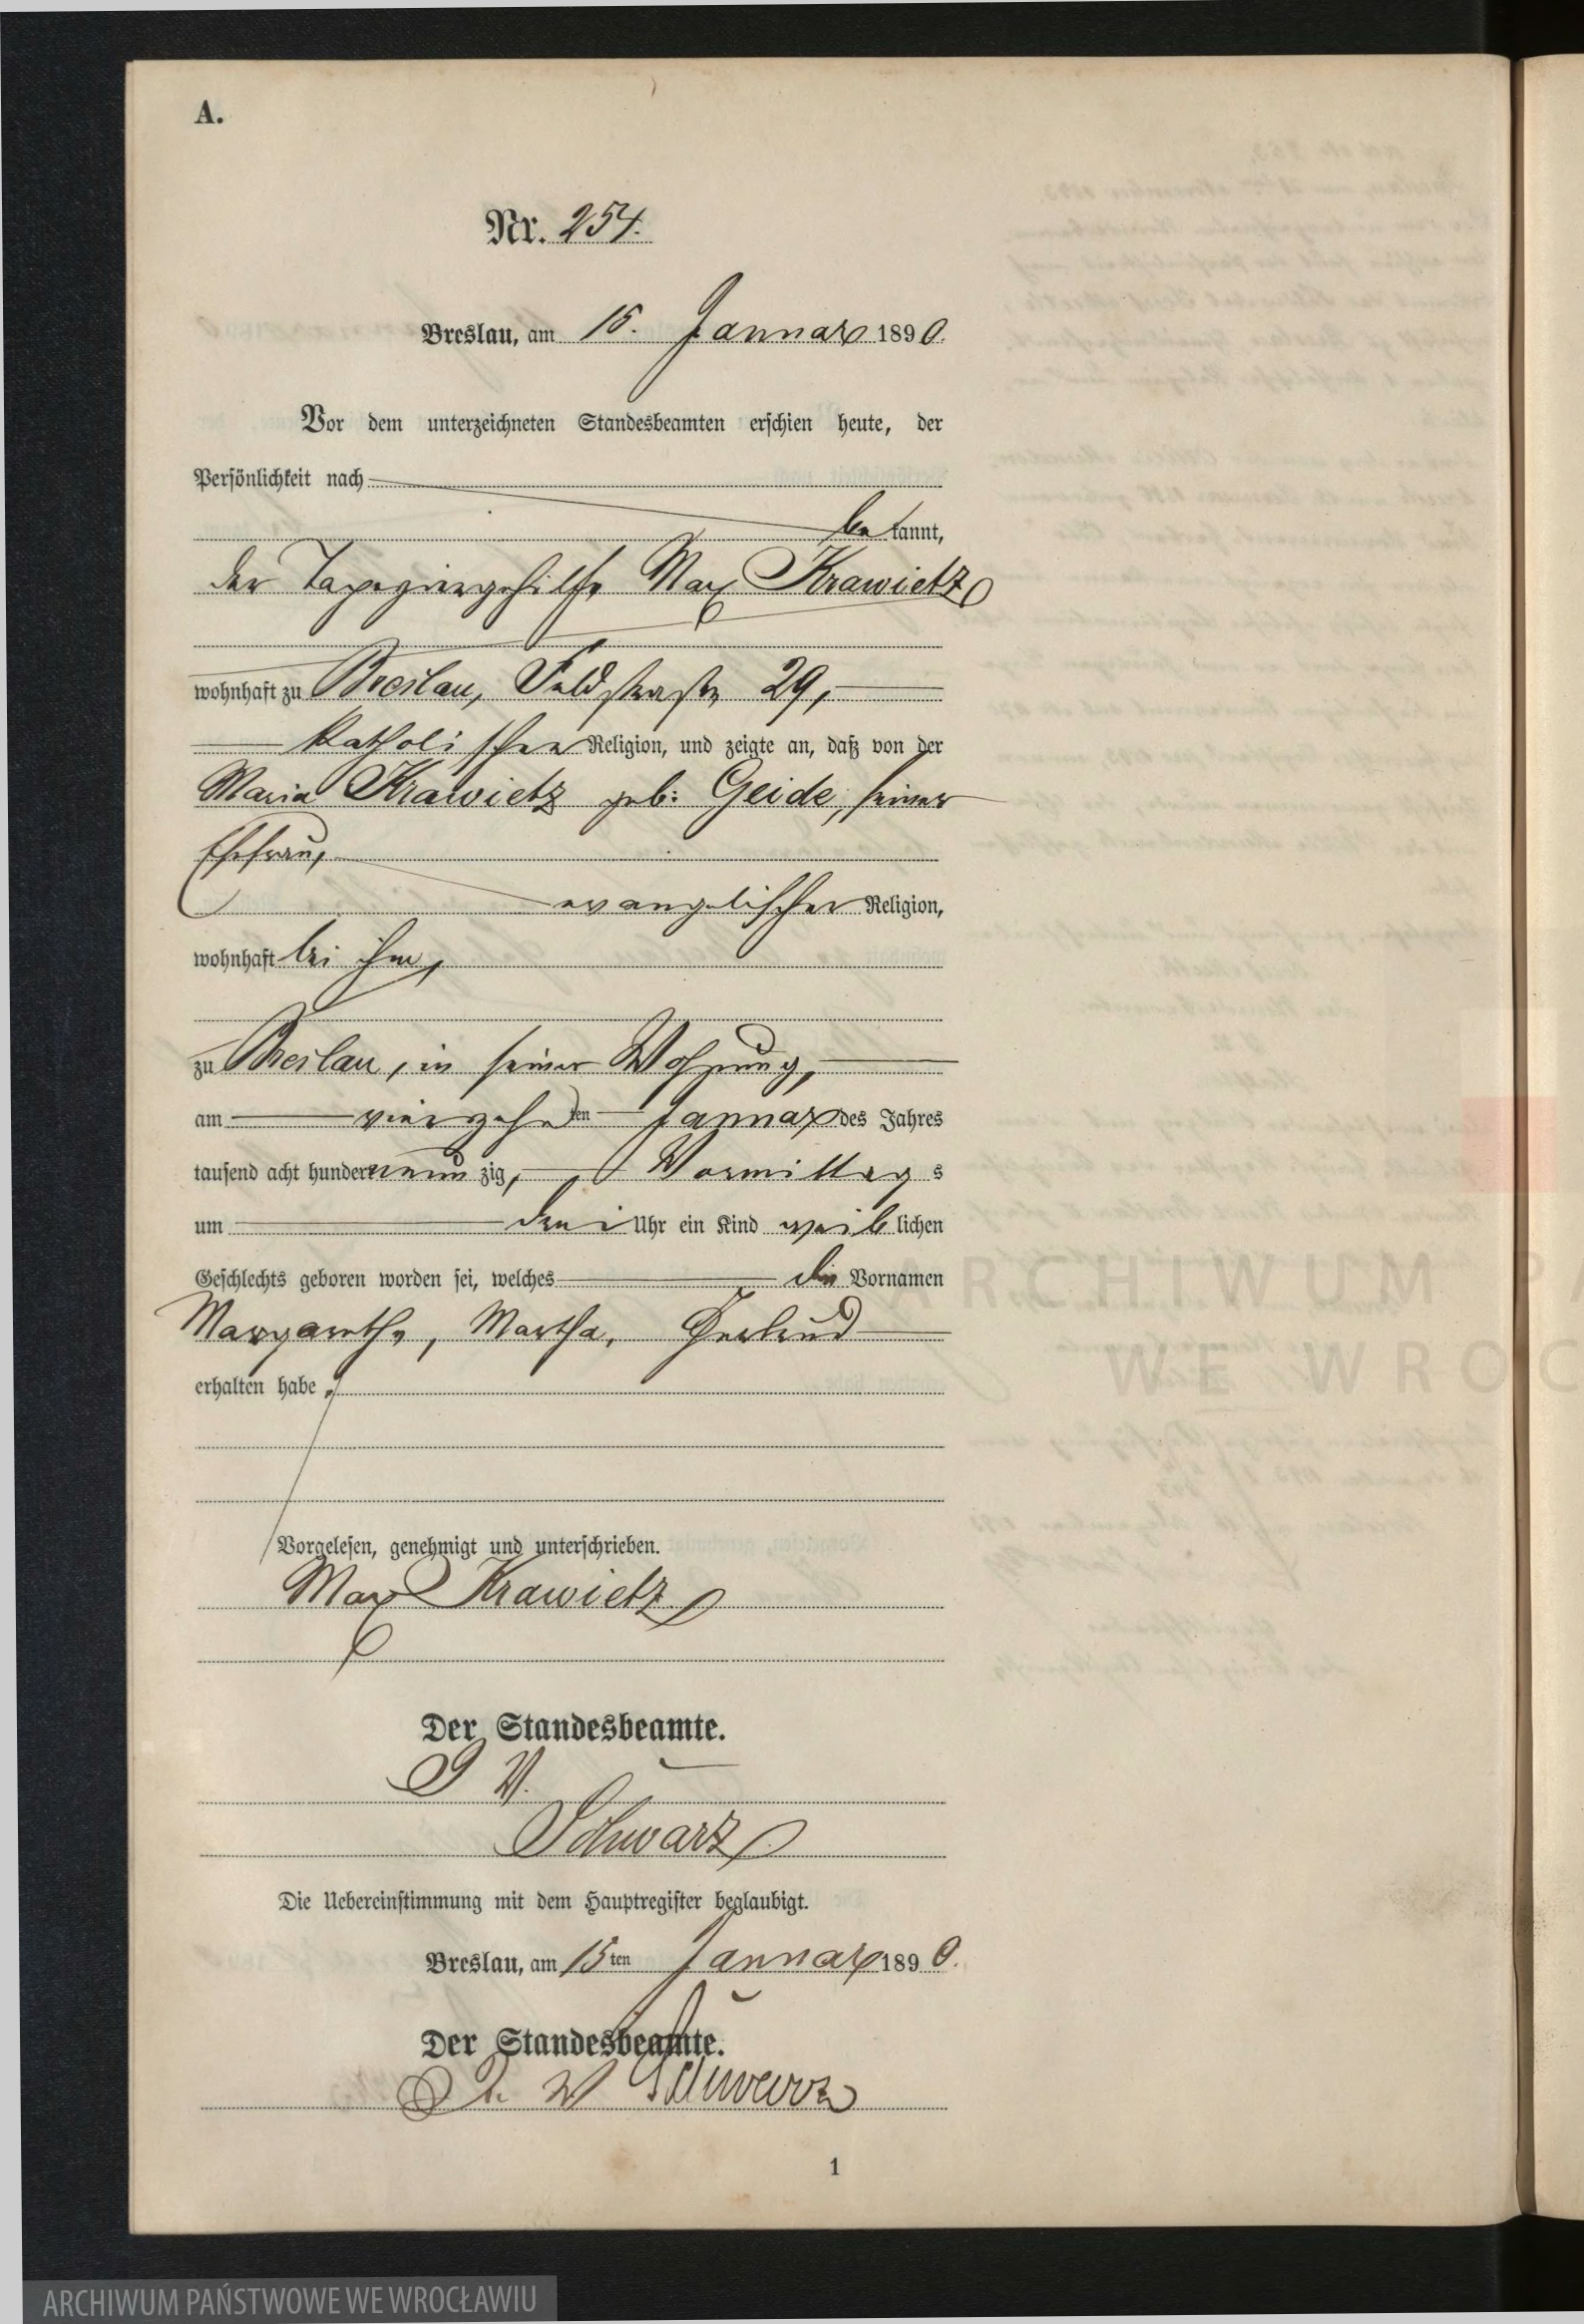 A.
Nr. 254.
Breslau, am 15. Januar 1890.
Vor dem unterzeichneten Standesbeamten erschien heute, der
Persönlichkeit nach
bekannt,
der Tapeziergehilfe Max Krawietz
wohnhaft zu Breslau, Feldstraße 29,
katholischer Religion, und zeigte an, daß von der
Maria Krawietz geb: Geide, seiner
Ehefrau,
evangelischer Religion,
wohnhaft bei ihm,
zu Breslau, in seiner Wohnung,
am vierzehnten Januar des Jahres
tausend acht hundert neunzig, Vormittags
um drei Uhr ein Kind weiblichen
Geschlechts geboren worden sei, welches die Vornamen
Margarethe, Martha, Gertrud
erhalten habe.
Vorgelesen, genehmigt und unterschrieben.
Max Krawietz
Der Standesbeamte.
I V.
Schwarz
Die Uebereinstimmung mit dem Hauptregister beglaubigt.
Breslau, am 15ten Januar 1890.
Der Standesbeamte.
I. V Schwarz
1
ARCHIWUM PA
WE WROC
ARCHIWUM PAŃSTWOWE WE WROCŁAWIU